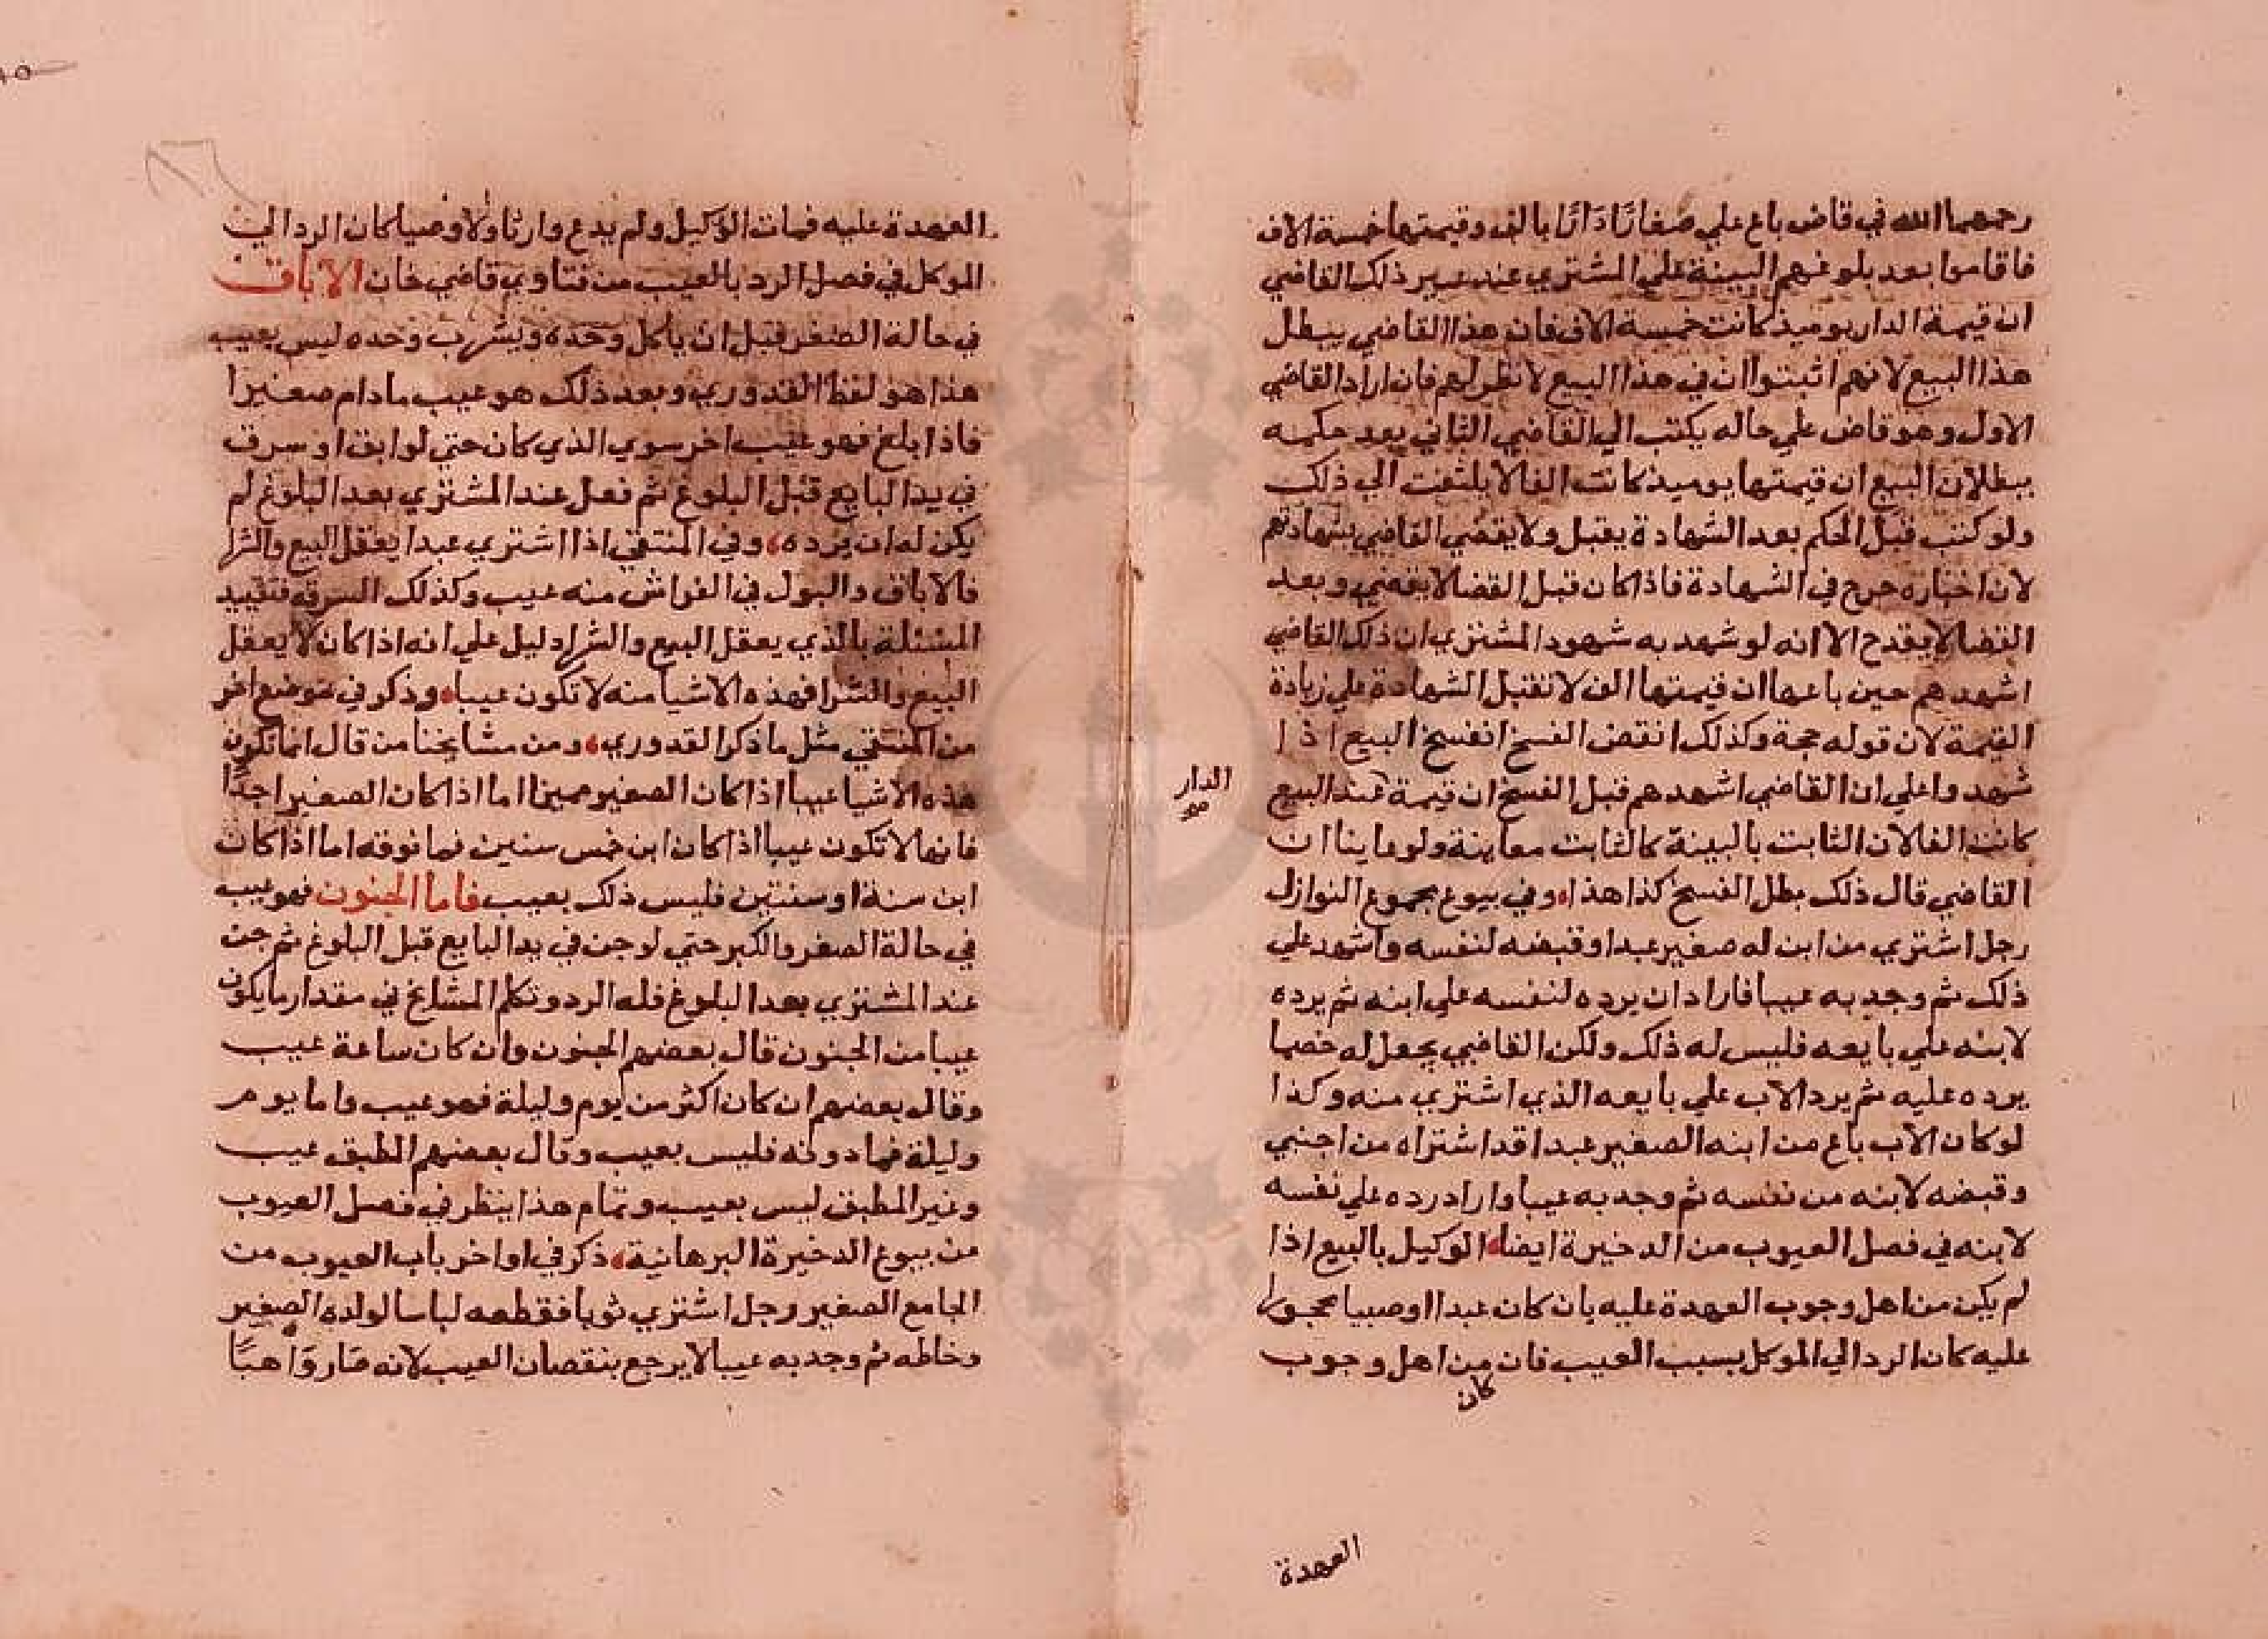 رحمهما الله في قاض باع علي صغار دارا بالف وقيمتها خمسة الاف
فاقاموا بعد بلوغهم البينة علي المشتري عند غير ذلك القاضي
ان قيمة الدار يوميذ كانت خمسة الاف فان هذا القاضي يبطل
هذا البيع لانهم اثبتوا ان في هذا البيع لا نظر لهم فان اراد القاضي
الاول وهو قاض علي حاله يكتب الي القاضي الثاني بعد حكمه
ببطلان البيع ان قيمتها يوميذ كانت الفا لا يلتفت الي ذلك
ولو كتب قبل الحكم بعد الشهادة يقبل ولا يقضي القاضي بشهادتهم
لان اخباره جرح في الشهادة فاذا كان قبل القضا لا يقضي وبعد
القضا لا يقدح الا انه لو شهد به شهود المشتري ان ذلك القاضي
اشهدهم حين باعها ان قيمتها الف لا تقبل الشهادة علي زيادة
القيمة لان قوله حجة وكذلك انتقض الفسخ انفسخ البيع اذا
شهدوا علي ان القاضي اشهدهم قبل الفسخ ان قيمة عند البيع
الدار
صح
كانت الفا لان الثابت بالبينة كالثابت معاينة ولو عاينا ان
القاضي قال ذلك بطل الفسخ كذا هذا، وفي بيوع مجموع النوازل
رجل اشتري من ابن له صغير عبدا وقبضه لنفسه واشهد علي
ذلك ثم وجد به عيبا فاراد ان يرده لنفسه علي ابنه ثم يرده
لابنه علي بايعه فليس له ذلك ولكن القاضي يجعل له خصما
يرده عليه ثم يرد الاب علي بايعه الذي اشتري منه وكذا
لو كان الاب باع من ابنه الصغير عبدا قد اشتراه من اجنبي
وقبضه لابنه من نفسه ثم وجد به عيبا واراد رده علي نفسه
لابنه في فصل العيوب من الدخيرة ايضا، الوكيل بالبيع اذا
لم يكن من اهل وجوب العهدة عليه بان كان عبدا او صبيا محجورا
عليه كان الرد الي الموكل بسبب العيب فان من اهل وجوب
كان
العهدة
العهدة عليه فمات الوكيل ولم يدع وارثا ولا وصيا كان الرد الي
الموكل في فصل الرد بالعيب من فتاوي قاضي خان الاباق
في حالة الصغر قبل ان ياكل وحده ويشرب وحده ليس بعيب
هذا هو لفظ القدوري وبعد ذلك هو عيب مادام صغيرا
فاذا بلغ فهو عيب اخر سوي الذي كان حتي لو ابق او سرق
في يد البايع قبل البلوغ ثم فعل عند المشتري بعد البلوغ لم
يكن له ان يرده، وفي المنتقي اذا اشتري عبدا يعقل البيع والشرا
فالاباق والبول في الفراش منه عيب وكذلك السرقة فتقييد
المسئلة بالذي يعقل البيع والشرا دليل علي انه اذا كان لا يعقل
البيع والشرا فهذه الاشيا منه لا تكون عيبا، وذكر في موضع اخر
من المنتقي مثل ما ذكر القدوري، ومن مشايخنا من قال انما تكون
هذه الاشيا عيبا اذا كان الصغير مميزا اما اذا كان الصغير اجدا
فانها لا تكون عيبا اذا كان ابن خمس سنين فما فوقه اما اذا كان
ابن سنة او سنتين فليس ذلك بعيب فاما الجنون فهو عيب
في حالة الصغر والكبر حتي لو جن في يد البايع قبل البلوغ ثم جن
عند المشتري بعد البلوغ فله الرد وتكلم المشايخ في مقدار ما يكون
عيبا من الجنون قال بعضهم الجنون وان كان ساعة عيب
وقال بعضهم ان كان اكثر من يوم وليلة فهو عيب واما يوم
وليلة فما دونه فليس بعيب وقال بعضهم المطبق عيب
وغير المطبق ليس بعيب وتمام هذا ينظر في فصل العيوب
من بيوع الدخيرة البرهانية، ذكر في اواخر باب العيوب من
الجامع الصغير رجل اشتري ثوبا فقطعه لباسا لولده الصغير
وخاطه ثم وجد به عيبا لا يرجع بنقصان العيب لانه صار واهبا